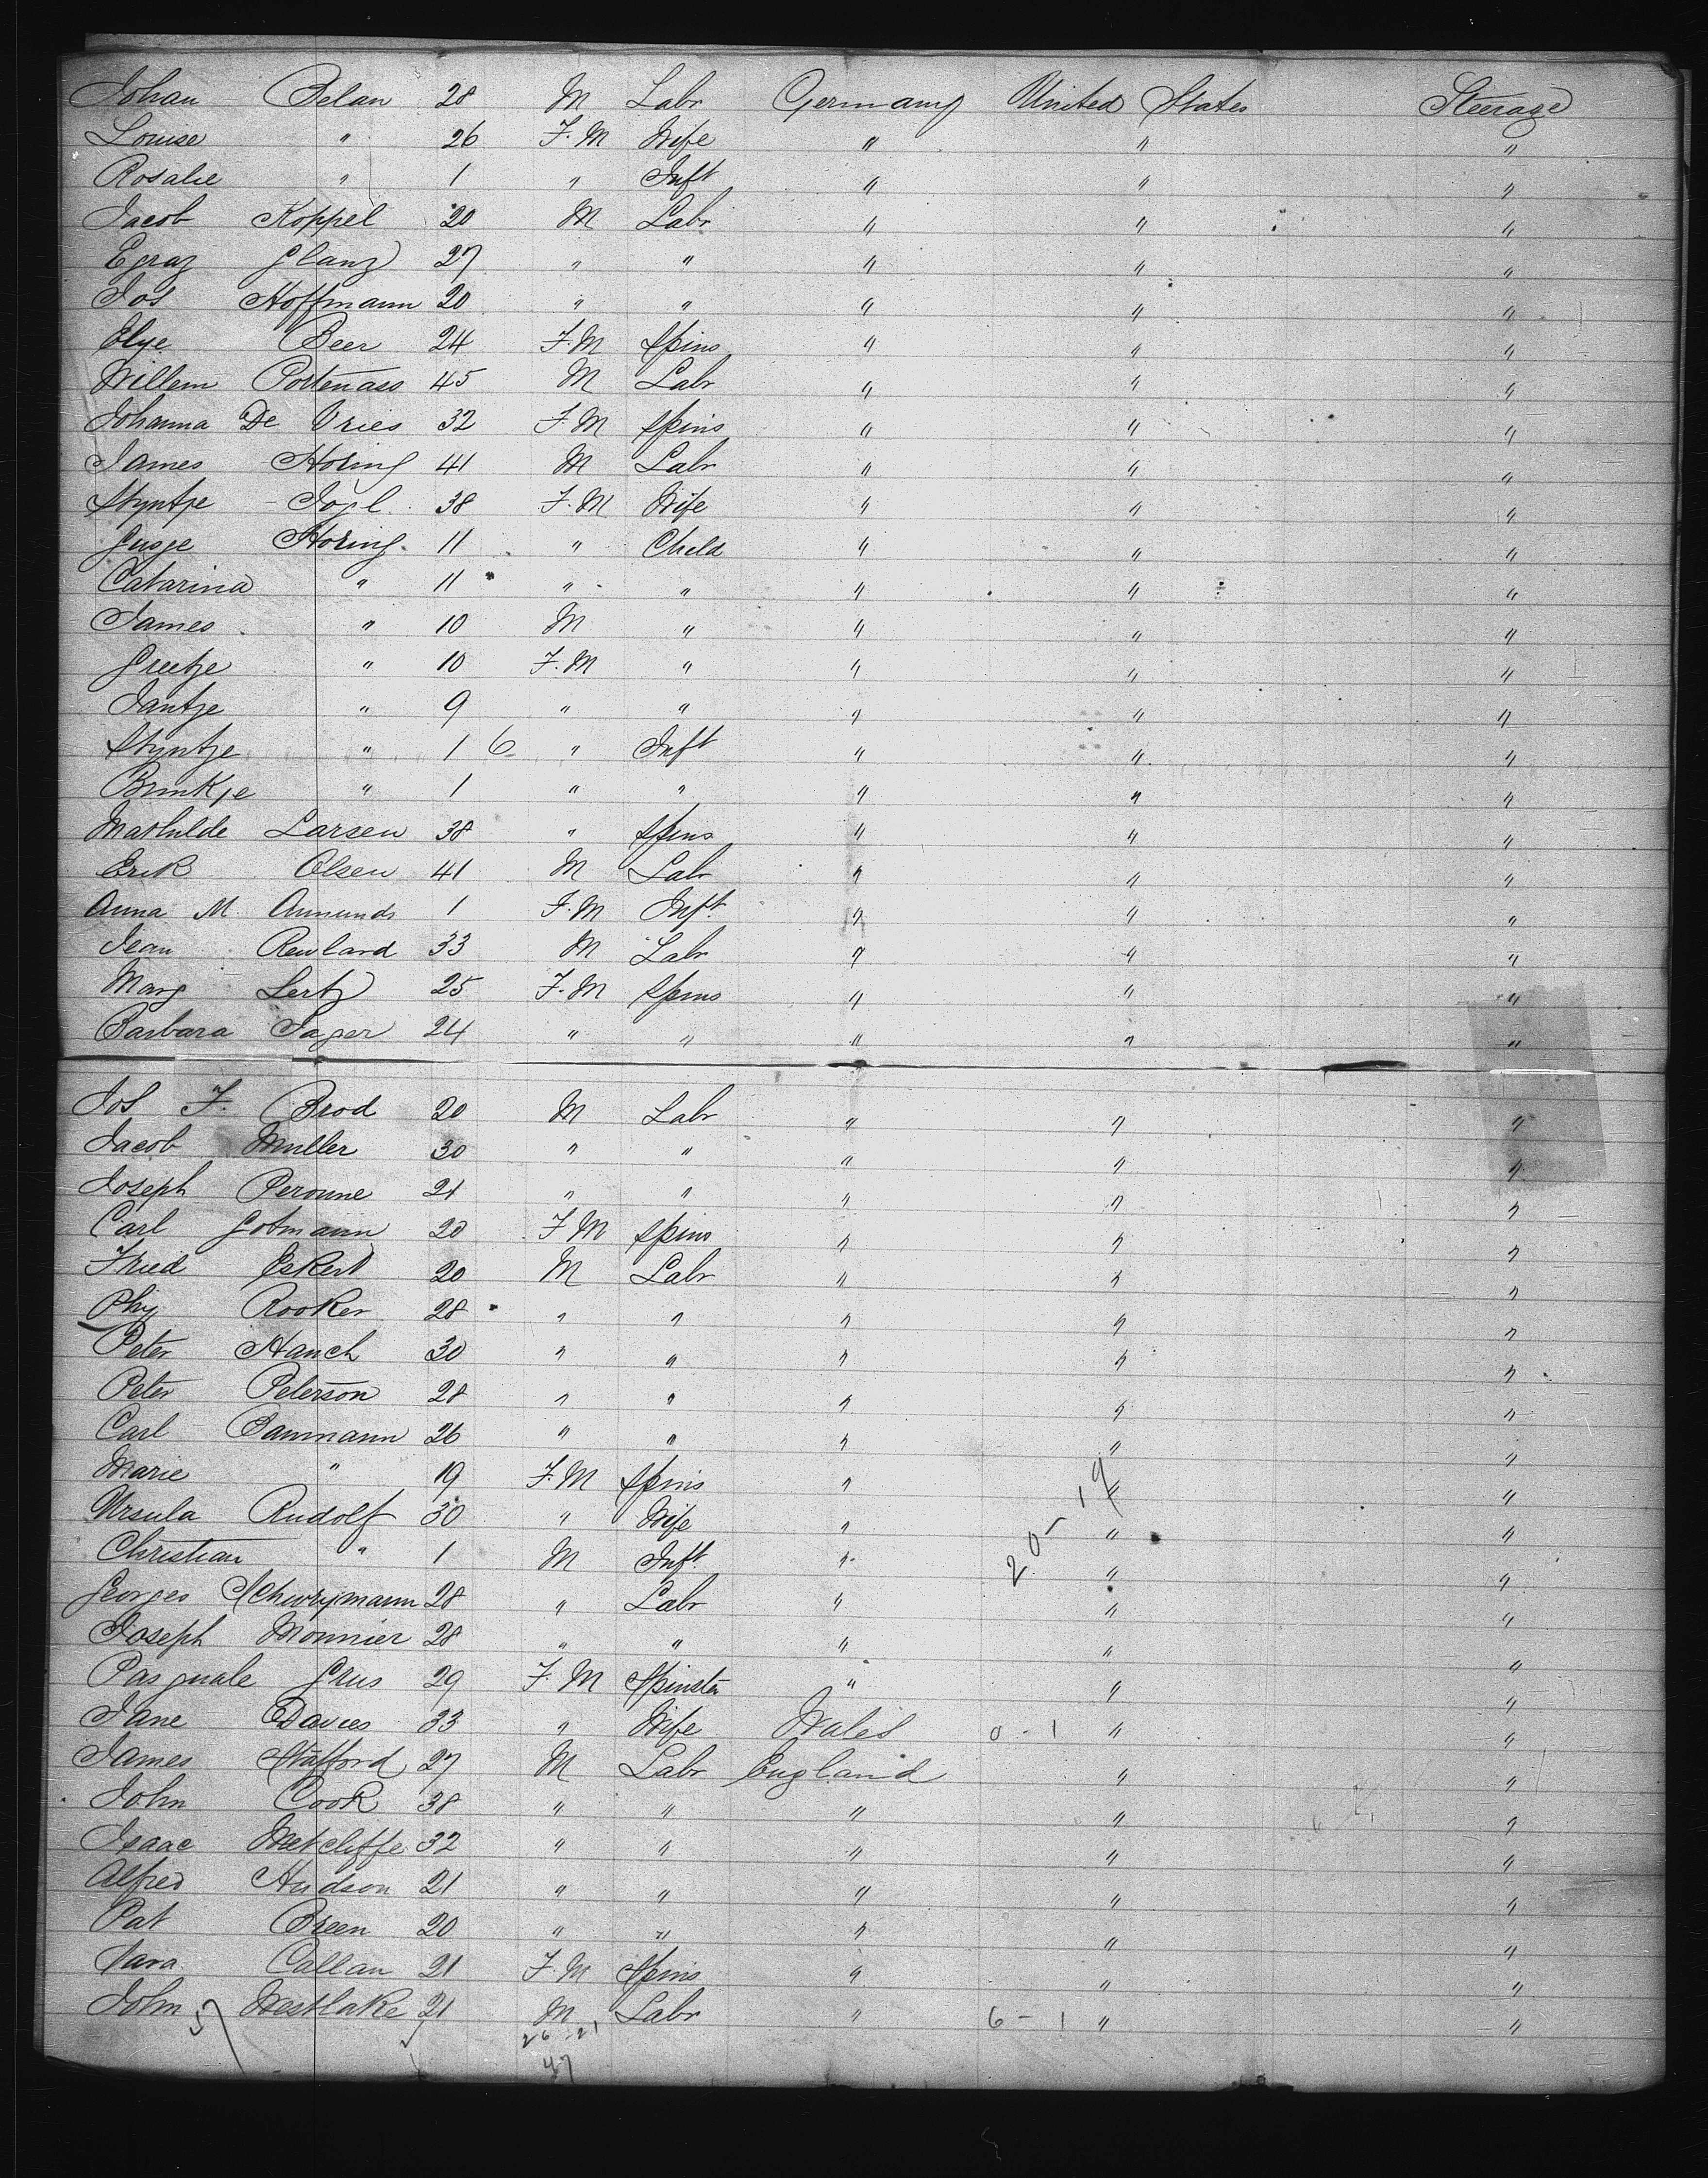 Johan Belan 28 M Labr Germany United States Steerage
Louise " 26 F.M Wife " " "
Rosalie " 1 " Inft " " "
Jacob Koppel 20 M Labr " " "
Egraz Glanz 27 " " " " "
Jos Hoffmann 20 " " " " "
Elye Beer 24 F.M Spins " " "
Willem Postenass 45 M Labr " " "
Johanna De Vries 32 F.M Spins " " "
James Horing 41 M Labr " " "
Styntje Jogl 38 F.M Wife " " "
Gusje Horing 11 " Child " " "
Catarina " 11 " " " " "
James " 10 M " " " "
Greetje " 10 F.M " " " "
Jantje " 9 " " " " "
Styntje " 1 6 " Inft " " "
Brinkje " 1 " " " " "
Mathilde Larsen 38 " Spins " " "
Erik Olsen 41 M Labr " " "
Anna M. Amunds 1 F.M Inft. " " "
Jean Rewlard 33 M Labr " " "
Marg Lertz 25 F.M Spins " " "
Barbara Sager 24 " " " " "
Jos F. Brod 20 M Labr " " "
Jacob Muller 30 " " " " "
Joseph Peronne 21 " " " " "
Carl Gotmann 20 F.M Spins " " "
Fried Eskert 20 M Labr " " "
Phy Rooker 28 " " " " "
Peter Hanch 30 " " " " "
Peter Peterson 28 " " " " "
Carl Baumann 26 " " " " "
Marie " 19 F.M Spins " " "
Ursula Rudolf 30 " Wife " 20 - 19 " "
Christian " 1 M Inft. " " "
Georges Schwrymann 28 " Labr " " "
Joseph Monnier 28 " " " " "
Pasquale Grus 29 F.M Spinster " " "
Jane Davies 33 " Wife Wales 0 - 1 " "
James Stafford 27 M Labr England " "
John Cook 38 " " " " "
Isaac Metcliffe 32 " " " " "
Alfred Hudson 21 " " " " "
Pat Breen 20 " " " " "
Sara Callan 21 F.M Spins " " "
John Westlake 21 M Labr " 6 - 1 " "
26 - 21
47